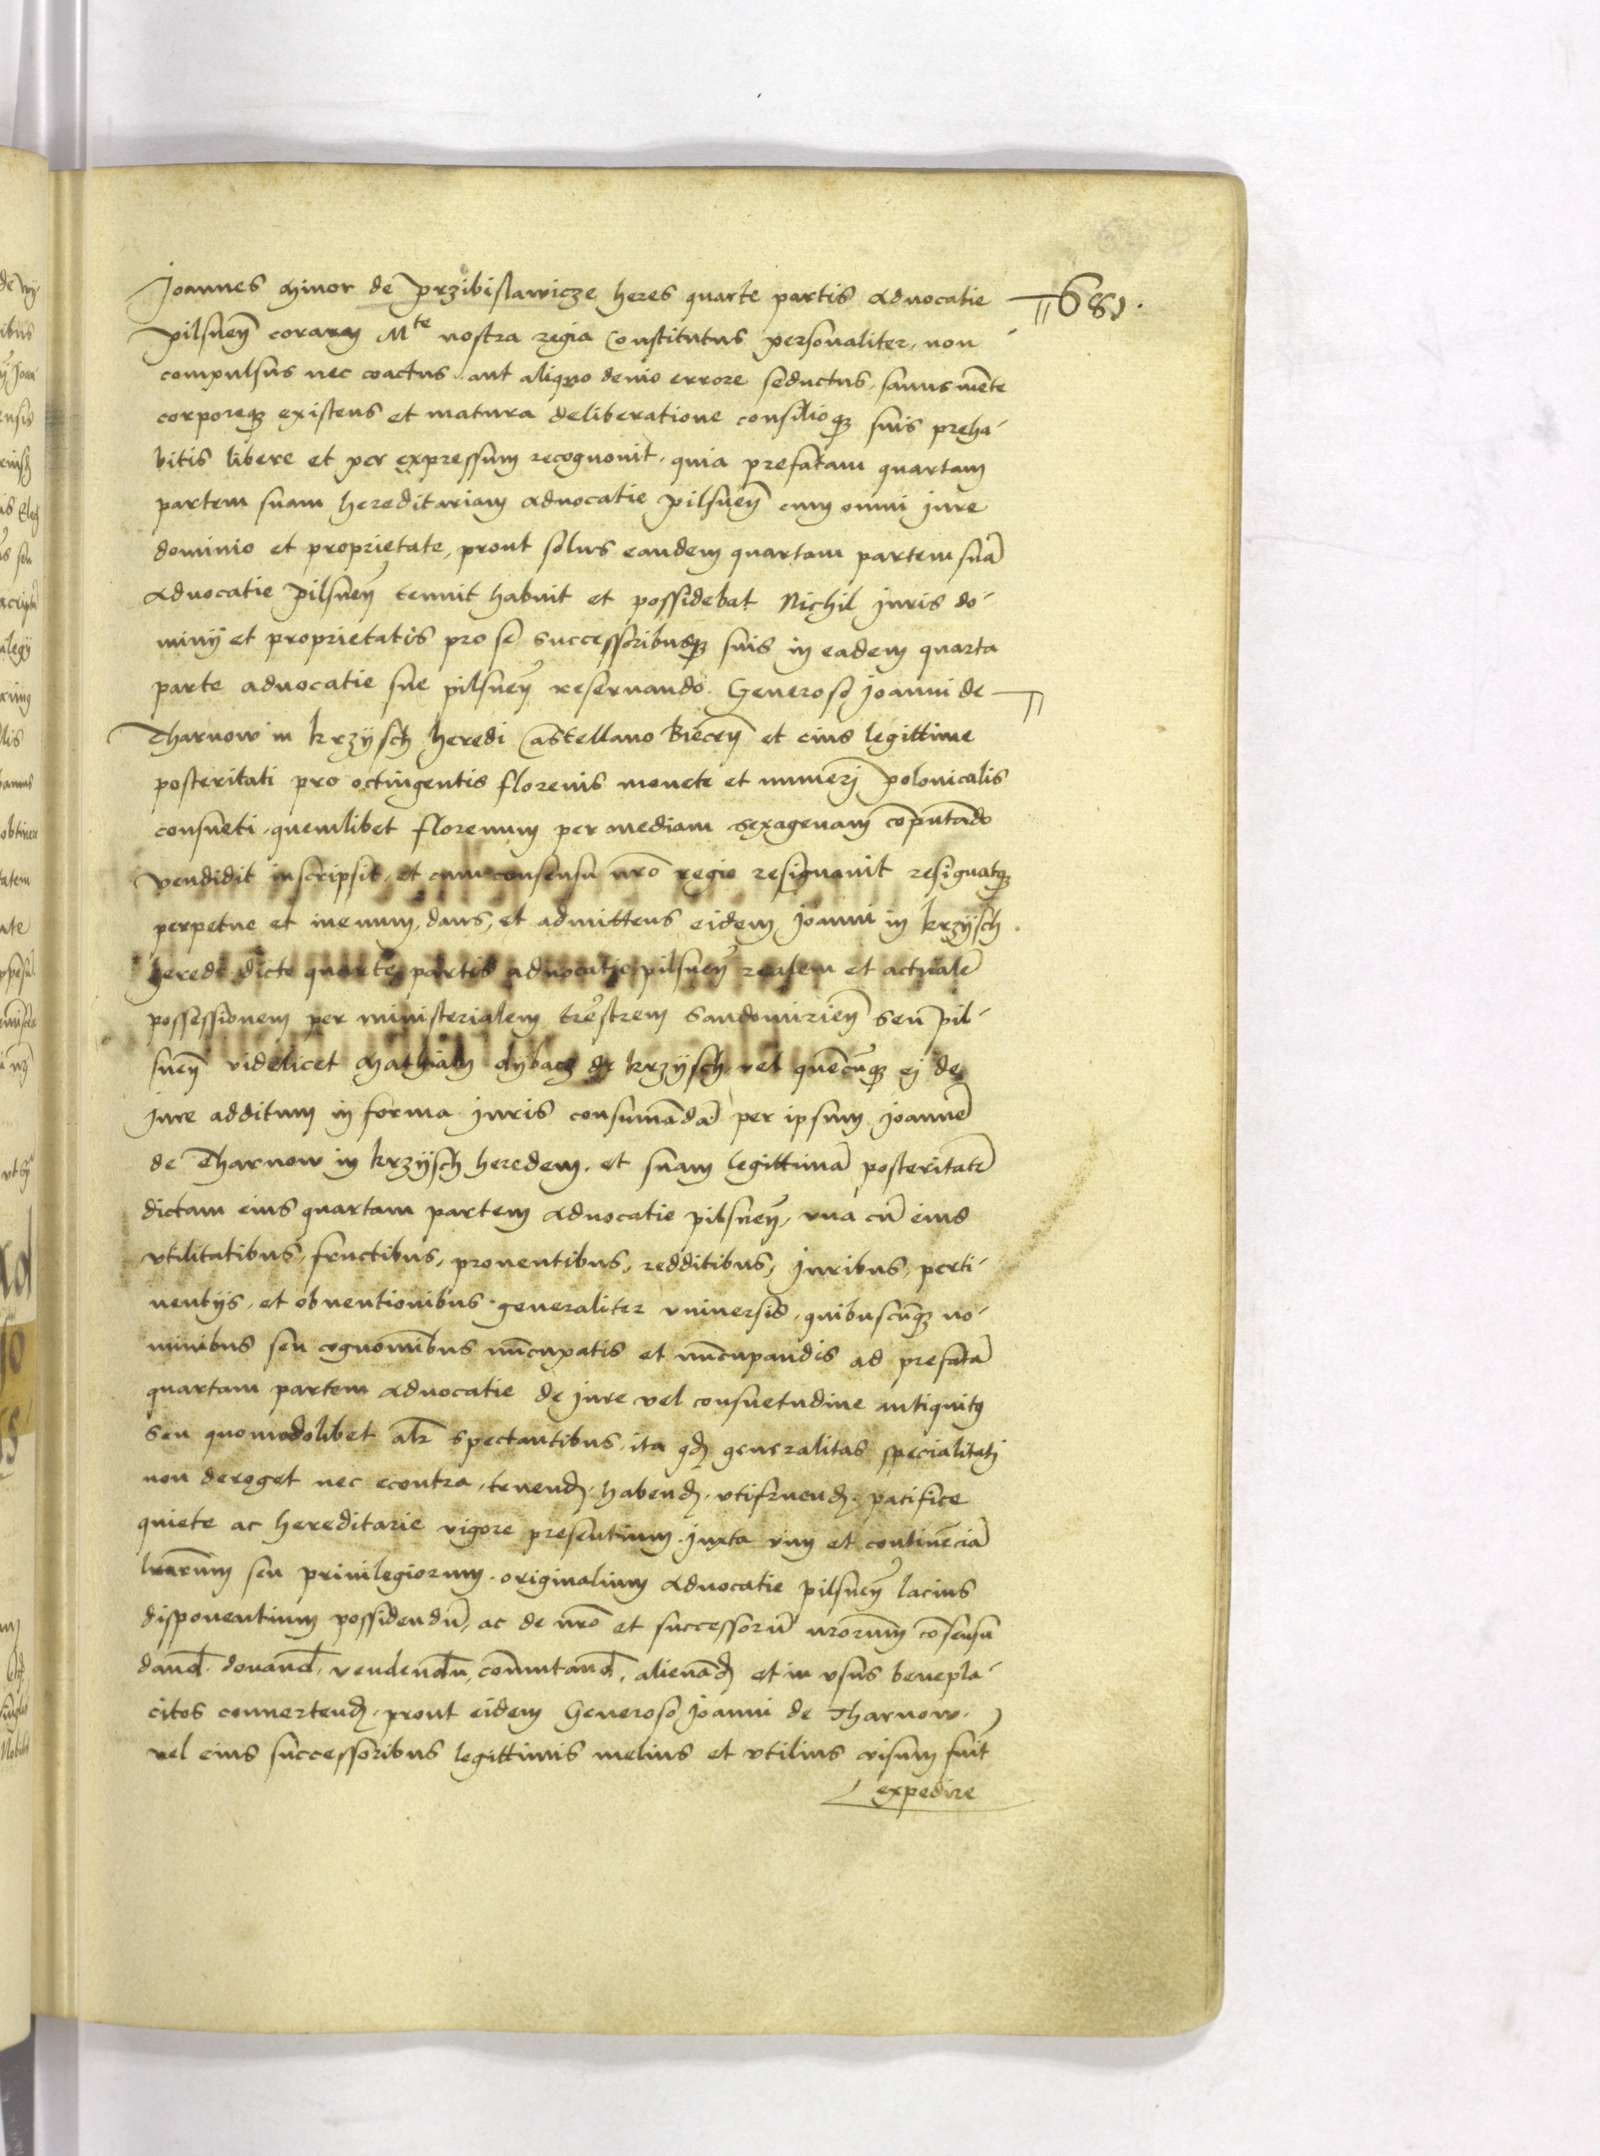 Joannes minor de Przibislawicze heres quarte partis advocatie
pilsneñ coram Mte nostra regia Constitutus personaliter, non
compulsus nec coactus aut aliquo devio errore seductus, sanus mẽte
corporeqz existens et matura deliberatione consilioqz suis preha-
bitis libere et per expressum recognovit, quia prefatam quartam
partem suam hereditariam advocatie pilsneñ cum omni jure
dominio et proprietate, prout solus eandem quartam partem suã
advocatie pilsneñ tenuit habuit et possidebat Nichil juris do-
minij et proprietatis pro se successoribusqz suis in eadem quarta
parte advocatie sue pilsneñ reservando. Generoso Joanni de
Tharnow in krzysch heredi Castellano Bieceñ et eius legittime
posteritati pro octingentis florenis monete et numeri polonicalis
consueti, quemlibet florenum per mediam sexagenam cõputãdo
vendidit inscripsit, et cum consensu nr̃o regio resignavit resignatqz
perpetue et in evum, dans, et admittens eidem Joanni in krzysch
heredi dicte quarte partis advocatie pilsneñ realem et actualẽ
possessionem per ministerialem trẽstrem Sandomirieñ seu pil-
sneñ videlicet Mathiam de krzysch vel quẽcũqz ej de
jure additum in forma juris consumãdã per ipsum Joannẽ
de Tharnow in krzysch heredem, et suam legittimã posteritatẽ
dictam eius quartam partem advocatie pilsneñ, una cũ eius
utilitatibus, fructibus, proventibus, redditibus, juribus, perti-
nentijs, et obventionibus generaliter universis, quibuscũqz no-
minibus seu cognomĩbus nũcupatis et nũcupandis ad prefatã
quartam partem advocatie de jure vel consuetudine antiquitus
seu quomodolibet alr̃ spectantibus, ita qd generalitas specialitatj
non deroget nec econtra, tenend, habend, utifruend, pacifice
quiete ac hereditarie vigore presentium juxta vim et continẽciã
lr̃arum seu privilegiorum originalium advocatie pilsneñ lacius
disponentium possidendũ, ac de nr̃o et successorũ nr̃orum cõsensu
dand, donand, vendendũ, cõmutand, alienãd et in usus benepla-
citos convertend, prout eidem Generoso Joanni de Tharnow
vel eius successoribus legittimis melius et utilius visum fuit
expedire
681.